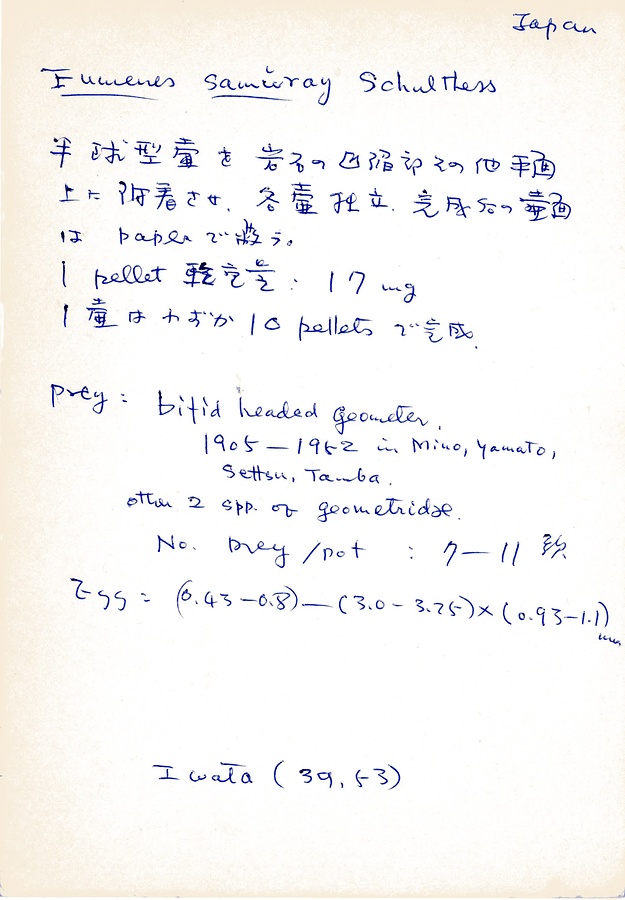 Japan
Eumenes Samuray Schulthess
半球型壷を岩石の凹陥部その他平面
上に附着させ、各壷独立、完成后の壷面
は paper で被う。
1 pellet 乾定量: 17 mg
1 壷はわずか 10 pellets で完成.
prey: bifid headed geometer,
1905—1952 in Mino, Yamato,
Settsu, Tamba.
other 2 spp. of geometridae.
No. prey/pot : 7—11 頭
Egg = (0.43-0.8)—(3.0-3.25)×(0.93-1.1)
mm
Iwata (39, 53)